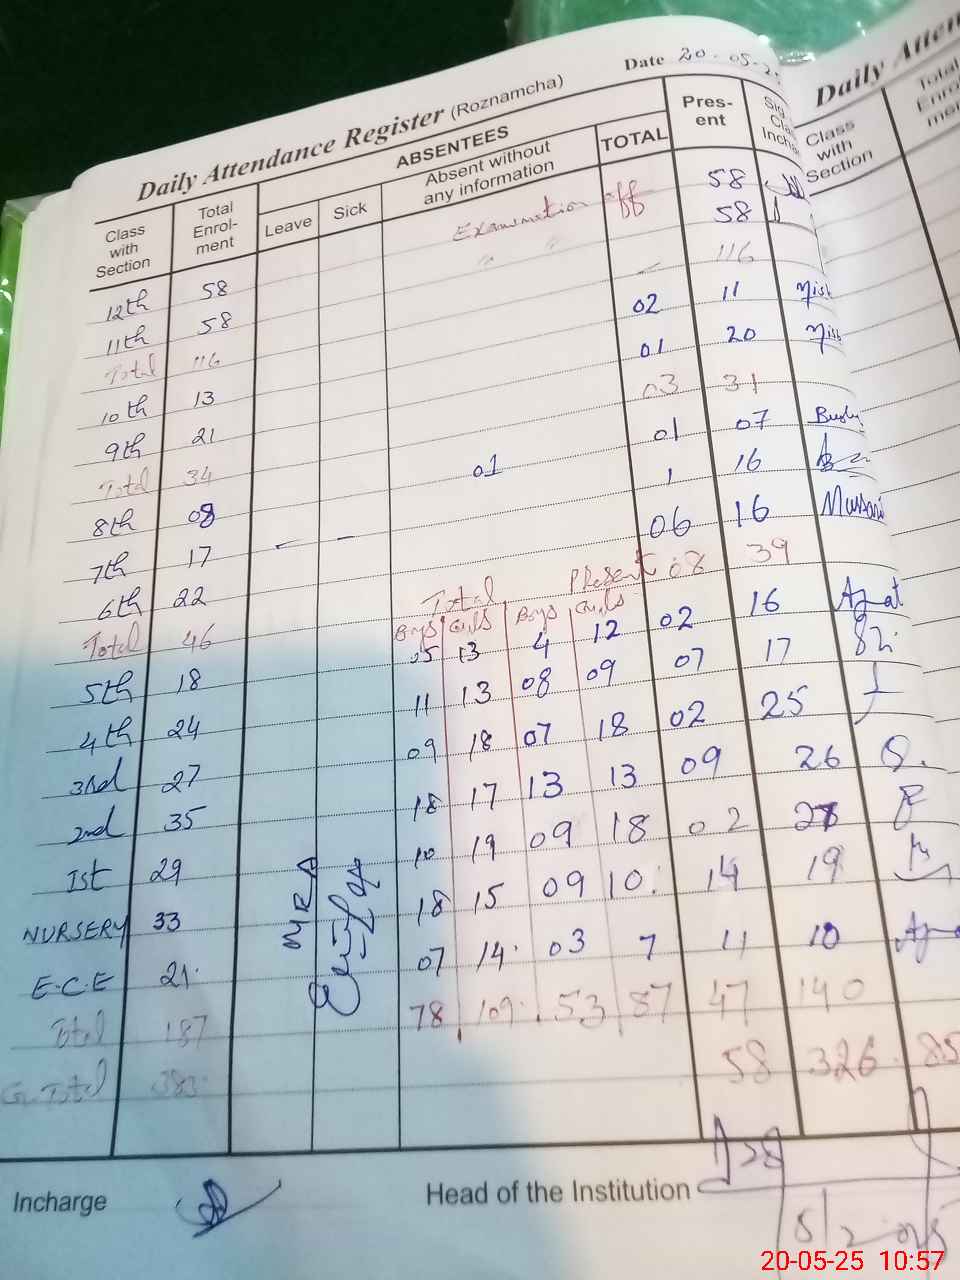 Daily Attendance Register (Roznamcha) Date 20-05-25
Class with Section Total Enrol-ment ABSENTEES Leave Sick Absent without any information TOTAL Pres-ent
12th 58 Examination off 58
11th 58 " " 58
Total 116 - 116
10th 13 02 11
9th 21 01 20
Total 34 03 31
8th 08 01 01 07
7th 17 - - 1 16
6th 22 06 16
Total 46 Total Present 08 39
Boys Girls Boys Girls
5th 18 05 13 4 12 02 16
4th 24 11 13 08 09 07 17
3rd 27 09 18 07 18 02 25
2nd 35 18 17 13 13 09 26
Ist 29 10 19 09 18 02 27
NURSERY 33 18 15 09 10 14 19
E.C.E 21 07 14 03 7 11 10
Total 187 78 109 53 87 47 140
G.Total 383 58 326 85
Incharge Head of the Institution
Daily Atten
Class with Section Total Enro men
20-05-25 10:57